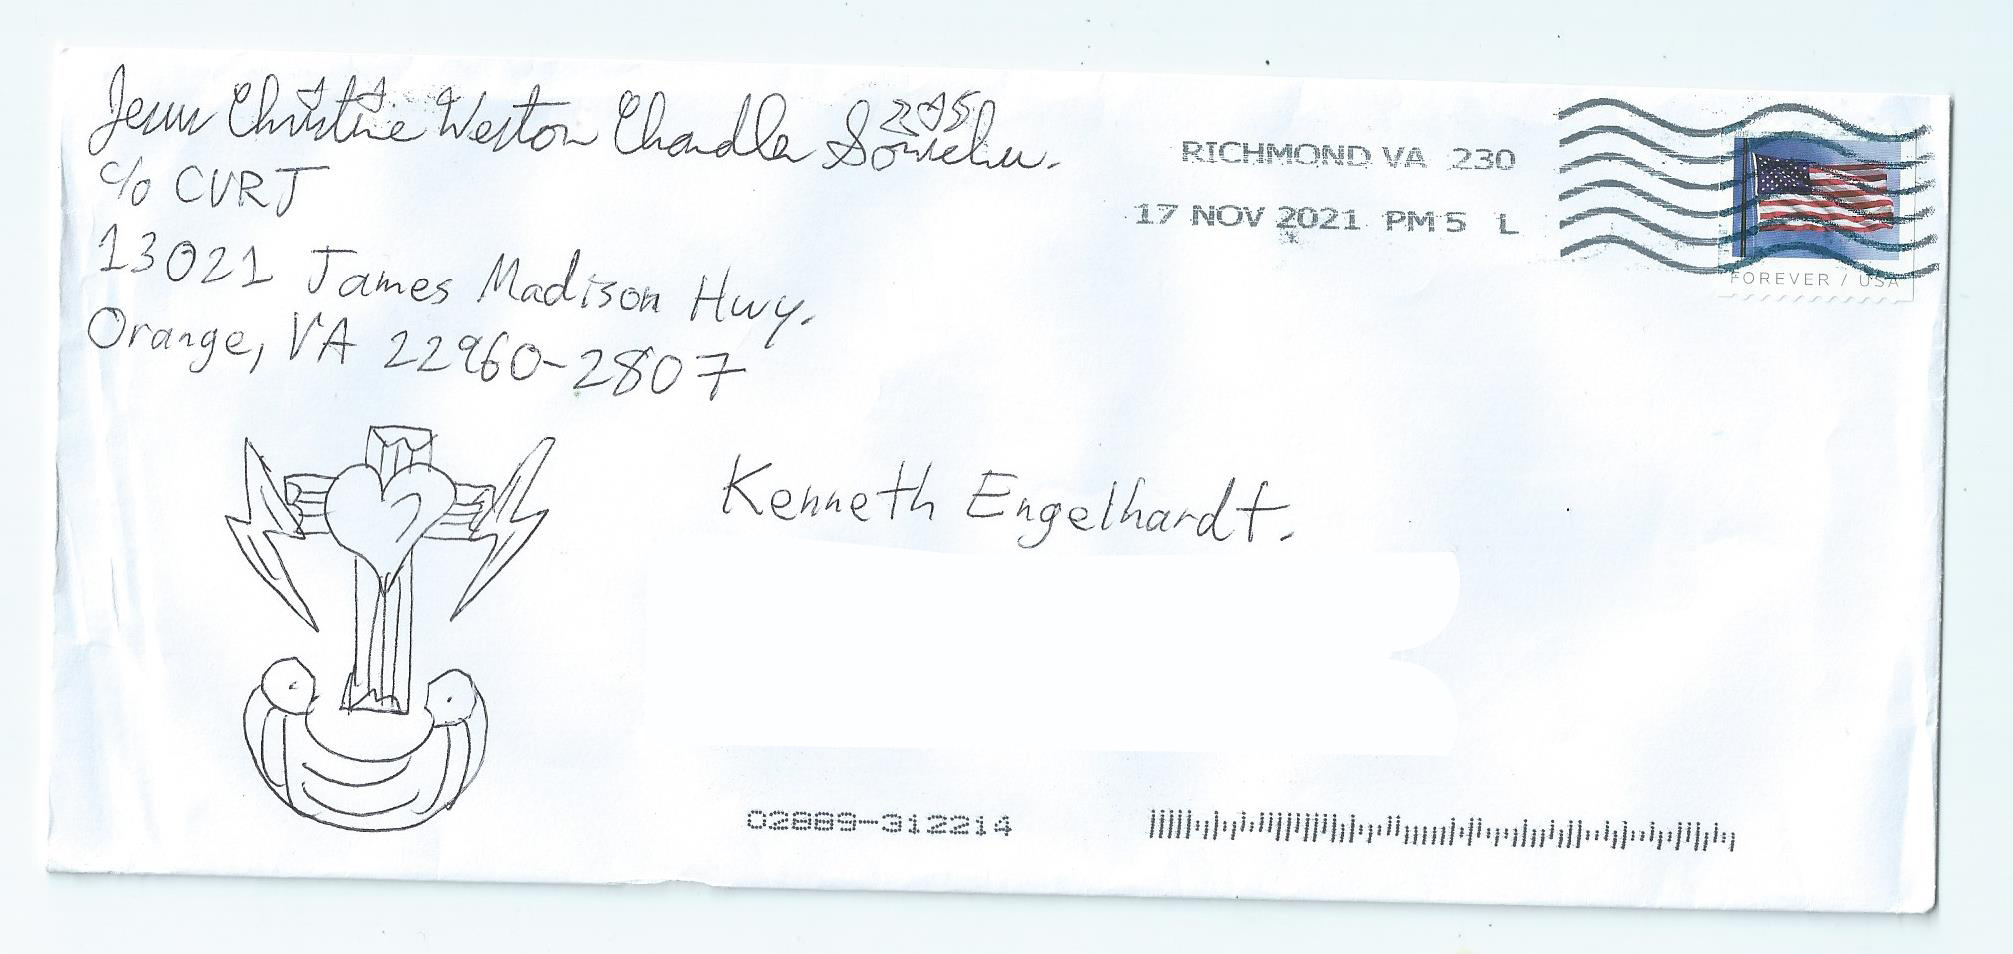 Jesus Christine Weston Chandler Sonichu.
c/o CVRJ
13021 James Madison Hwy.
Orange, VA 22960-2807
RICHMOND VA 230
17 NOV 2021 PM 5 L
FOREVER / USA
Kenneth Engelhardt.
02889-312214